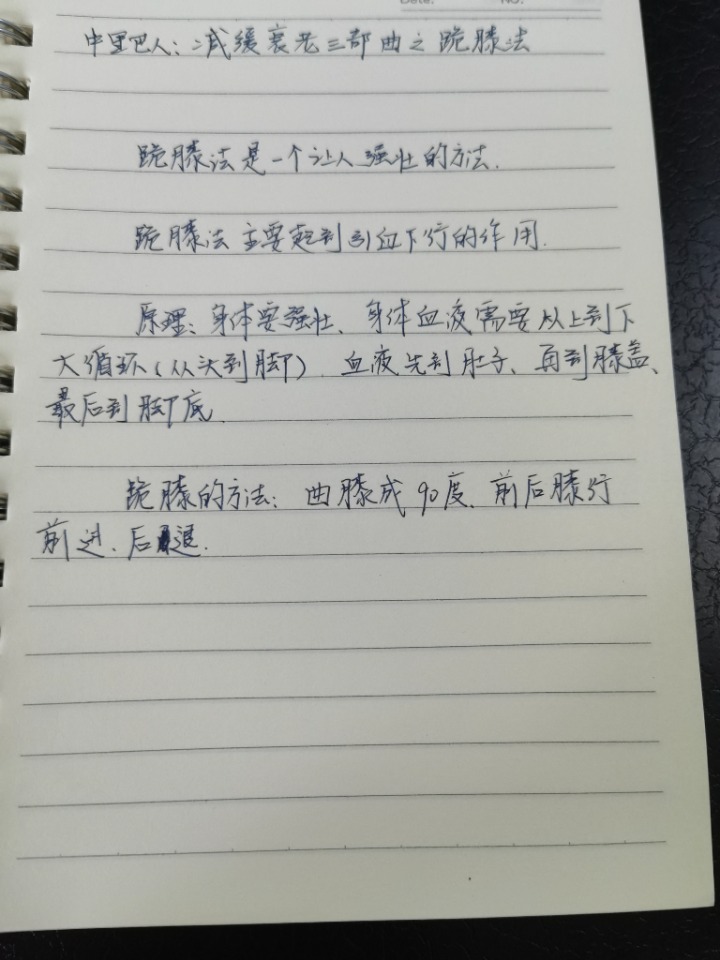 Date: No:
中里巴人：减缓衰老三部曲之跪膝法
跪膝法是一个让人强壮的方法.
跪膝法主要起到引血下行的作用.
原理：身体要强壮、身体血液需要从上到下
大循环（从头到脚）.血液先到肚子、再到膝盖、
最后到脚底.
跪膝的方法：曲膝成90度.前后膝行
前进、后退.